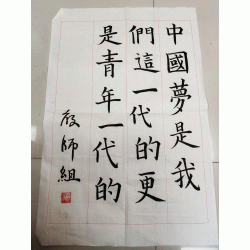 中國夢是我
們這一代的更
是青年一代的
教師組